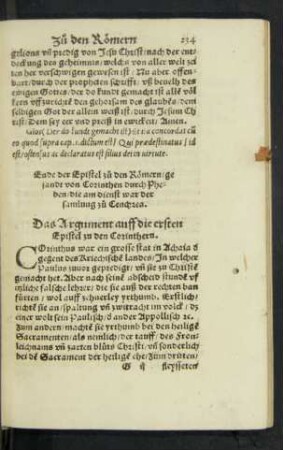 Zů den Römern 234
gelions vñ predig von Jesu Christ/ nach der ent-
deckung des geheimnis/ welchs von aller welt zei
ten her verschwigen gewesen ist: Nu aber offen-
bart/ durch der propheten schrifft/ vß beuelh des
ewigen Gottes/ der do kundt gemacht ist alls völ
kern vff zurichte den gehorsam des glaubes/ dem
selbigen Got der allein weiß ist/ durch Jesum Chri
ist/ Dem sey eer vnd preiß in ewickeit/ Amen.
ex quod supra cap. i. dictum est: Qui prædestinatus id
est ostensus ac declaratus est filius dei in virtute.
Ende der Epistel zů den Römern/ ge
sandt von Corinthen durch Phe-
ben/ die am dienst war der
samlung zů Cenchrea.
Das Argument auff die ersten
Epistel zu den Corinthern.
Corinthus war ein grosse stat in Achaia d
gegent des Kriechische landes/ In welcher
Paulus zuuor geprediget/ vñ sie zů Christe
gemacht het. Aber nach seine abscheid stunde vf
etliche falsche lehrer/ die sie auß der rechten ban
fürten/ wol auff zweierley yrthumb. Erstlich/
richte sie an spaltung vñ zwitracht im volck/ dz
einer wolt sein Paulisch/ d ander Appollisch zc.
Zum andern machte sie yrthumb bei den heilige
Sacramenten/ als nemlich/ der tauff/ des Fron-
leichnams vñ zarten blůts Christi/ vñ sonderlich
bei de Sacrament der heilige ehe/ Zum dritten/
G ij fleysseten